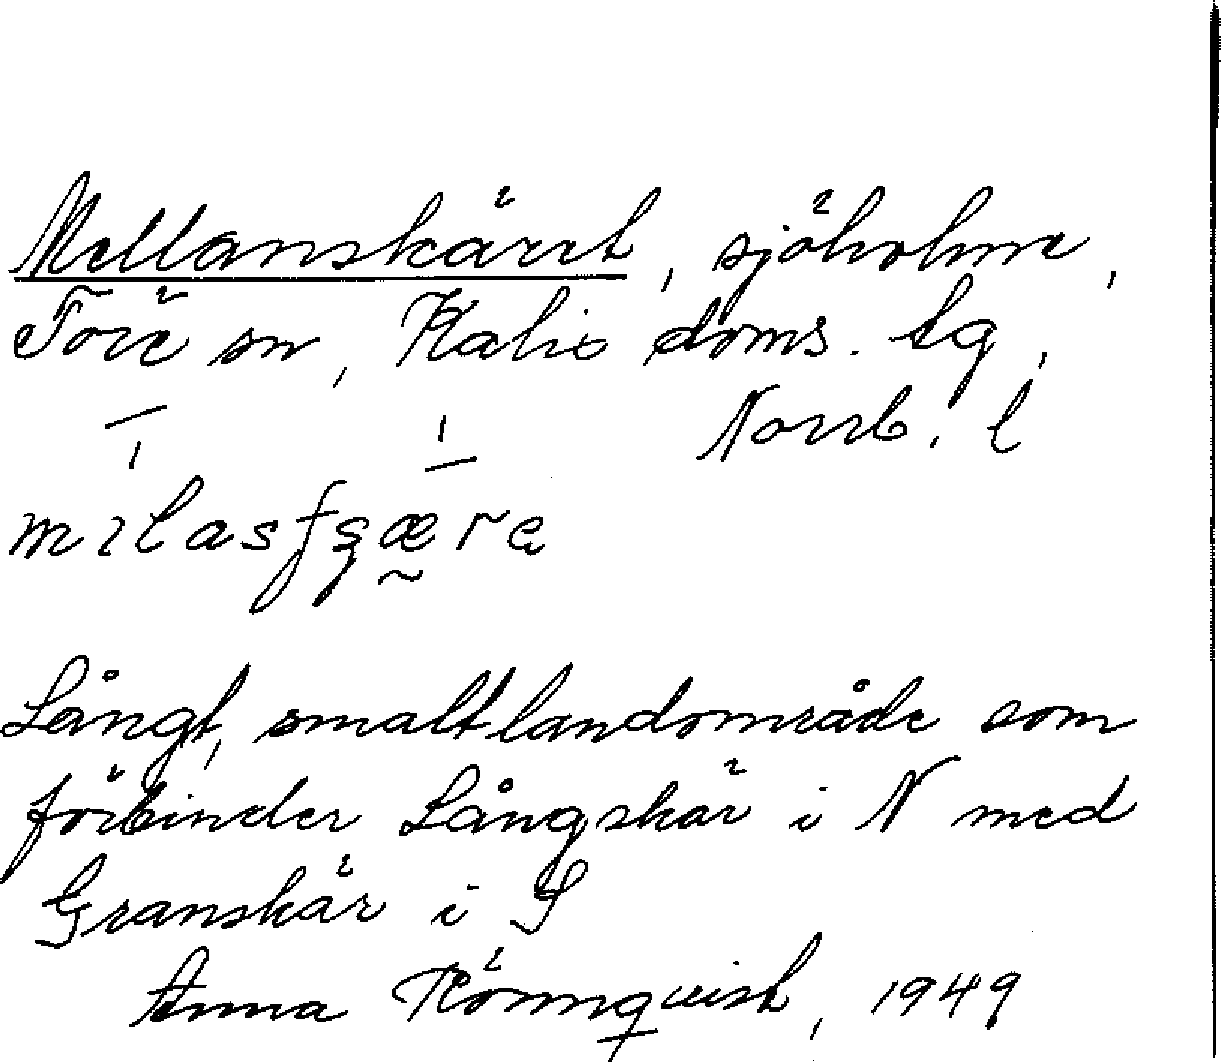 Mellanskäret, sjöholme,
Töre sn, Kalix doms. tg,
Norrb. l
Långt, smalt landområde som
förbinder Långskär i N med
Granskär i S
Anna Rönnqvist, 1949